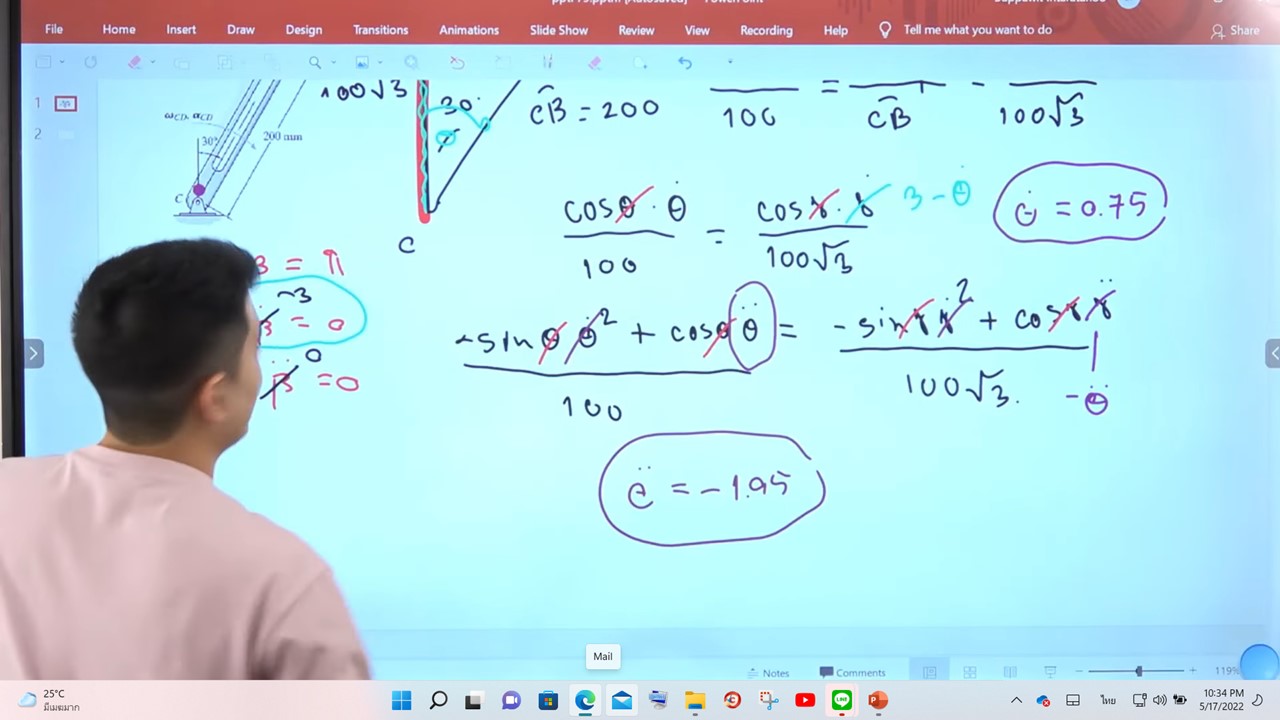 File Home Insert Draw Design Transitions Animations Slide Show Review View Recording Help Tell me what you want to do Share
1
2
ωCD, αCD
30°
200 mm
C
100√3
30°
C
CB = 200
100 = CB - 100√3
cosθ · θ̇ = cosγ · γ̇ 3 - θ̇
100 100√3
θ̇ = 0.75
β = π
β̇ = 0 3
β̈ = 0 0
-sinθ θ̇² + cosθ θ̈ = -sinγ γ̇² + cosγ γ̈
100 100√3.
-θ̈
θ̈ = -1.95
Mail
Notes Comments 119%
25°C
มีเมฆมาก
ไทย
10:34 PM
5/17/2022